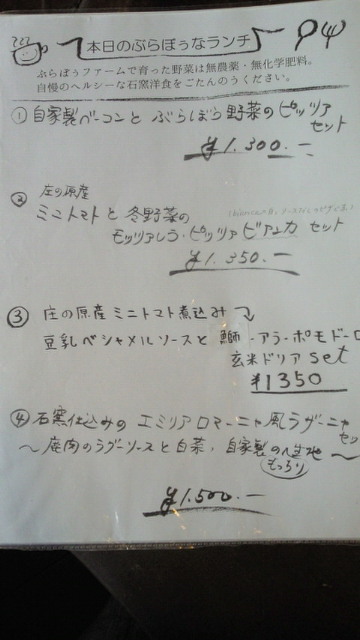 本日のぶらぼぅなランチ
ぶらぼぅファームで育った野菜は無農薬・無化学肥料。
自慢のヘルシーな石窯洋食をごたんのうください。
① 自家製ベーコンと ぶらぼぅ野菜のピッツァ
セット
¥1.300.—
庄の原産
② ミニトマトと冬野菜の
モッツァレラ・ピッツァ ビアンカ セット
¥1.350.—
③ 庄の原産ミニトマト煮込み
豆乳ベシャメルソースと 鰤・アラ・ポモドーロ
玄米ドリア set
¥1350
④ 石窯仕込みの エミリアロマーニャ風ラザーニャ
セット
〜鹿肉のラグーソースと白菜、自家製の生地〜
もっちり
¥1.500.—